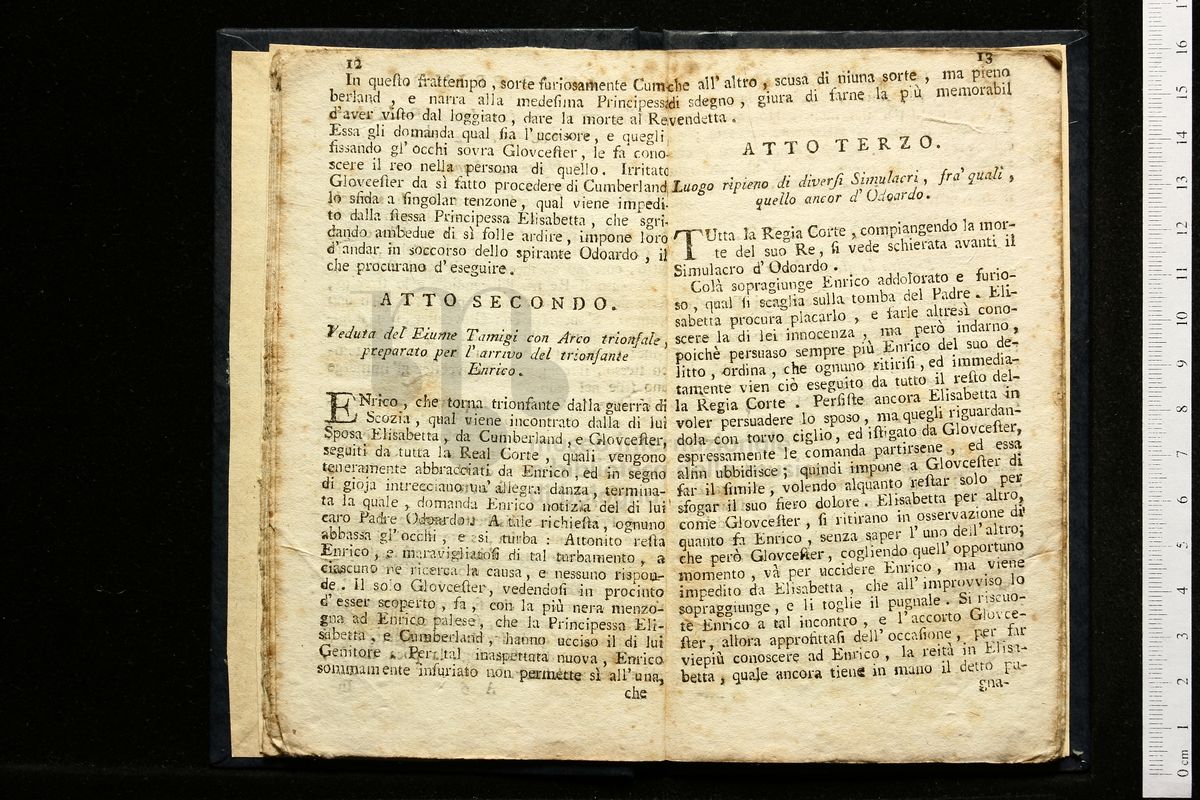 12
In questo frattempo, sorte furiosamente Cum-
berland, e narra alla medesima Principessa
d'aver visto dal loggiato, dare la morte al Re
Essa gli domanda qual sia l'uccisore, e quegli
fissando gl'occhi sovra Glovcester, le fa cono-
scere il reo nella persona di quello. Irritato
Glovcester da sì fatto procedere di Cumberland
lo sfida a singolar tenzone, qual viene impedi-
to dalla stessa Principessa Elisabetta, che sgri-
dando ambedue di sì folle ardire, impone loro
d'andar in soccorso dello spirante Odoardo, il
che procurano d'eseguire.
ATTO SECONDO.
Veduta del Fiume Tamigi con Arco trionfale,
preparato per l'arrivo del trionfante
Enrico.
ENrico, che torna trionfante dalla guerra di
Scozia, qual viene incontrato dalla di lui
Sposa Elisabetta, da Cumberland, e Glovcester,
seguiti da tutta la Real Corte, quali vengono
teneramente abbracciati da Enrico, ed in segno
di gioja intrecciano un'allegra danza, termina-
ta la quale, domanda Enrico notizia del di lui
caro Padre Odoardo. A tale richiesta, ognuno
abbassa gl'occhi, e si turba: Attonito resta
Enrico, e maravigliatosi di tal turbamento, a
ciascuno ne ricerca la causa, e nessuno rispon-
de. Il solo Glovcester, vedendosi in procinto
d'esser scoperto, fa, con la più nera menzo-
gna ad Enrico palese, che la Principessa Eli-
sabetta, e Cumberland, hanno ucciso il di lui
Genitore. Per tal inaspettata nuova, Enrico
sommamente infuriato non permette sì all'una,
che
13
che all'altro, scusa di niuna sorte, ma pieno
di sdegno, giura di farne la più memorabil
vendetta.
ATTO TERZO.
Luogo ripieno di diversi Simulacri, fra' quali,
quello ancor d'Odoardo.
TUtta la Regia Corte, compiangendo la mor-
te del suo Re, si vede schierata avanti il
Simulacro d'Odoardo.
Colà sopragiunge Enrico addolorato e furio-
so, qual si scaglia sulla tomba del Padre. Eli-
sabetta procura placarlo, e farle altresì cono-
scere la di lei innocenza, ma però indarno,
poichè persuaso sempre più Enrico del suo de-
litto, ordina, che ognuno ritirisi, ed immedia-
tamente vien ciò eseguito da tutto il resto del-
la Regia Corte. Persiste ancora Elisabetta in
voler persuadere lo sposo, ma quegli riguardan-
dola con torvo ciglio, ed istigato da Glovcester,
espressamente le comanda partirsene, ed essa
alfin ubbidisce; quindi impone a Glovcester di
far il simile, volendo alquanto restar solo per
sfogar il suo fiero dolore. Elisabetta per altro,
come Glovcester, si ritirano in osservazione di
quanto fa Enrico, senza saper l'uno dell'altro;
che però Glovcester, cogliendo quell'opportuno
momento, và per uccidere Enrico, ma viene
impedito da Elisabetta, che all'improvviso lo
sopraggiunge, e li toglie il pugnale. Si riscuo-
te Enrico a tal incontro, e l'accorto Glovce-
ster, allora approfittasi dell'occasione, per far
viepiù conoscere ad Enrico, la reità in Elisa-
betta, quale ancora tiene in mano il detto pu-
gna-